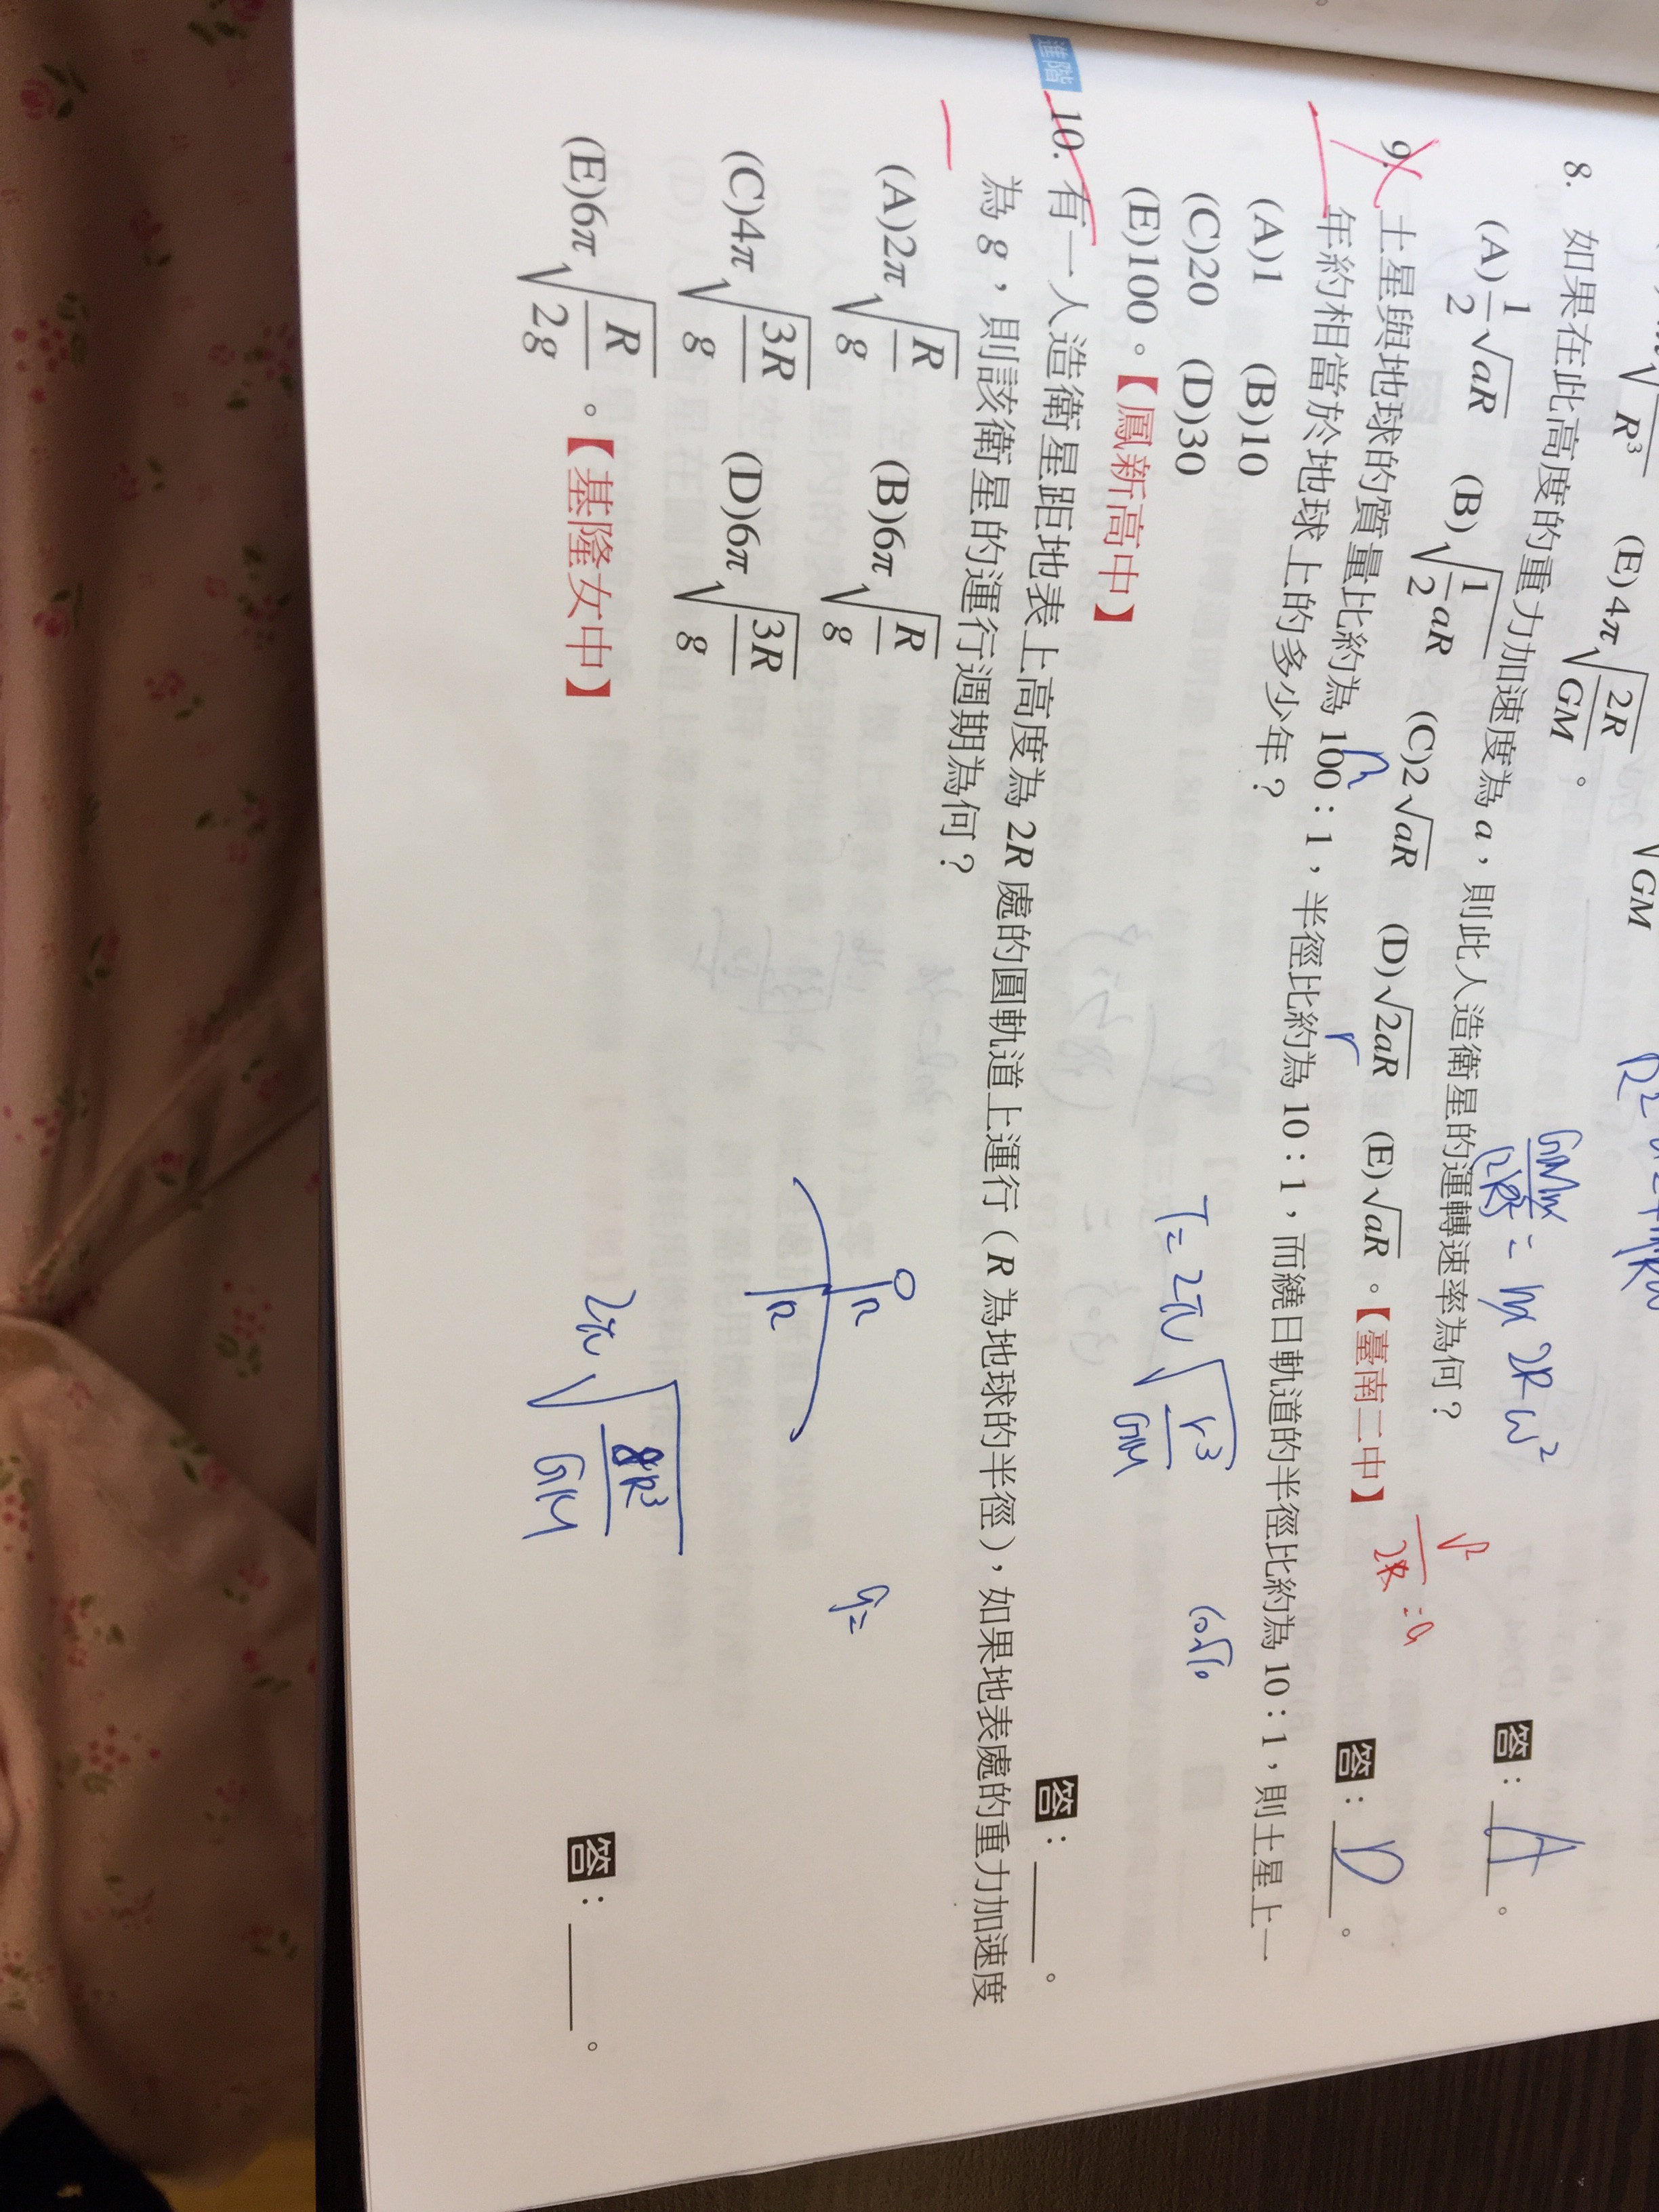 √GM
(E)4π√(2R/GM)。
R³
8. 如果在此高度的重力加速度為 a，則此人造衛星的運轉速率為何？
(A)1/2√aR (B)√(1/2)aR (C)2√aR (D)√2aR (E)√aR。【臺南二中】
GMm/(2R)² = m 2R ω²
V²/2R = a
答：A。
9. 土星與地球的質量比約為 100：1，半徑比約為 10：1，而繞日軌道的半徑比約為 10：1，則土星上一
年約相當於地球上的多少年？
答：D。
(A)1 (B)10
(C)20 (D)30
(E)100。【鳳新高中】
r
T= 2π√(r³/GM)
10√10
答：。
進階 10. 有一人造衛星距地表上高度為 2R 處的圓軌道上運行（R 為地球的半徑），如果地表處的重力加速度
為 g，則該衛星的運行週期為何？
(A)2π√(R/g) (B)6π√(R/g)
(C)4π√(3R/g) (D)6π√(3R/g)
(E)6π√(R/2g)。【基隆女中】
R
R
g=
2π√(8R³/GM)
答：。